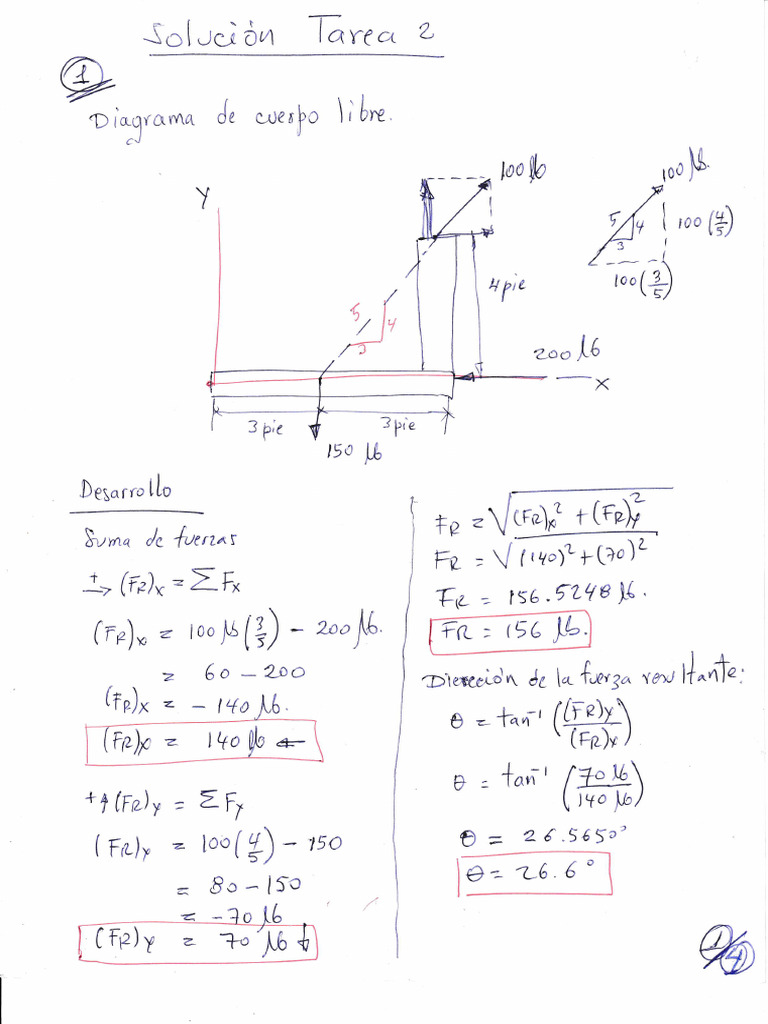 Solución Tarea 2
1
Diagrama de cuerpo libre.
Y
100 lb
5
4
3
4 pie
200 lb
X
3 pie
3 pie
150 lb
100 lb.
5
4
3
100 (4/5)
100 (3/5)
Desarrollo
Suma de fuerzas
+→ (FR)x = ΣFx
(FR)x = 100 lb (3/5) - 200 lb.
= 60 - 200
(FR)x = - 140 lb.
(FR)x = 140 lb ←
+↑ (FR)y = ΣFy
(FR)y = 100 (4/5) - 150
= 80 - 150
= -70 lb
(FR)y = 70 lb ↓
FR = √((FR)x² + (FR)y²)
FR = √((140)² + (70)²)
FR = 156.5248 lb.
FR = 156 lb.
Dirección de la fuerza resultante:
θ = tan⁻¹ ((FR)y/(FR)x)
θ = tan⁻¹ (70 lb/140 lb)
θ = 26.5650°
θ = 26.6°
1/4